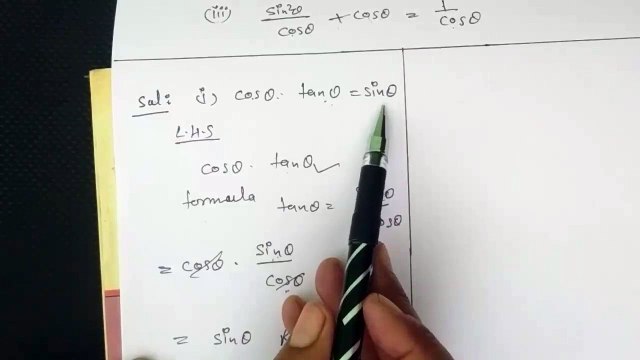 (iii) sin²θ/cosθ + cosθ = 1/cosθ
Sol: i) cosθ · tanθ = sinθ
L.H.S
cosθ · tanθ
formula tanθ =
= cosθ · sinθ/cosθ
= sinθ